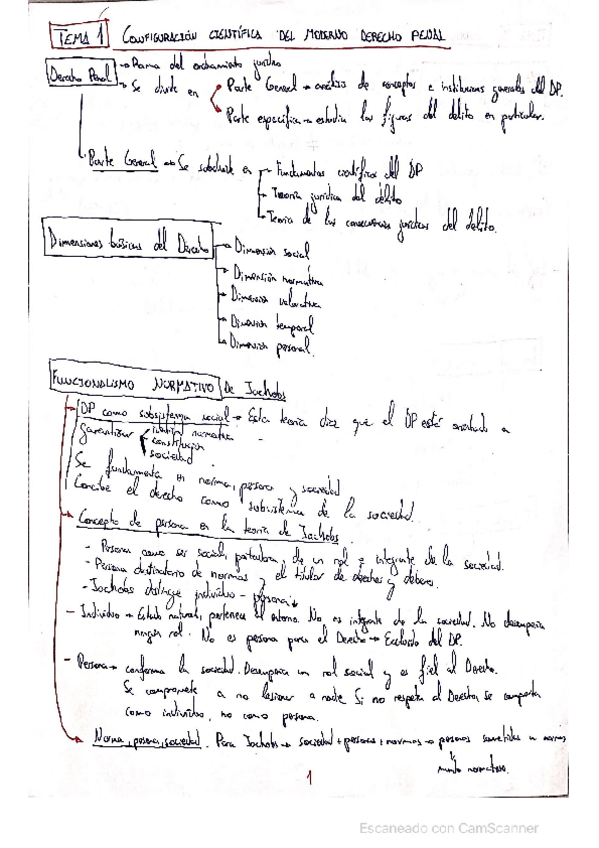 TEMA 1 CONFIGURACIÓN CIENTÍFICA DEL MODERNO DERECHO PENAL
Derecho Penal → Rama del ordenamiento jurídico
→ Se divide en
Parte General → análisis de conceptos e instituciones generales del DP.
Parte específica → estudia las figuras del delito en particular.
Parte General → Se subdivide en
Fundamentos científicos del DP
Teoría jurídica del delito
Teoría de las consecuencias jurídicas del delito.
Dimensiones básicas del Derecho
→ Dimensión social
→ Dimensión normativa
→ Dimensión valorativa
→ Dimensión temporal
→ Dimensión personal.
FUNCIONALISMO NORMATIVO De Jackobs
DP como subsistema social → Esta teoría dice que el DP está orientado a
garantizar
identidad normativa
constitución
sociedad
Se fundamenta en norma, persona y sociedad
Concibe el derecho como subsistema de la sociedad.
Concepto de persona en la teoría de Jackobs.
- Persona como ser social, portadora de un rol e integrante de la sociedad.
- Persona destinatario de normas y el titular de derechos y deberes.
- Jackobs distingue individuo - persona
- Individuo → Estado natural, pertenece al entorno. No es integrante de la sociedad. No desempeña
ningún rol. No es persona para el Derecho → Excluido del DP.
- Persona → conforma la sociedad. Desempeña un rol social y es fiel al Derecho.
Se compromete a no lesionar a nadie. Si no respeta el Derecho, se comporta
como individuo, no como persona.
Norma, persona, sociedad. Para Jackobs → sociedad + personas + normas → personas sometidas a normas
mundo normativo.
1
Escaneado con CamScanner